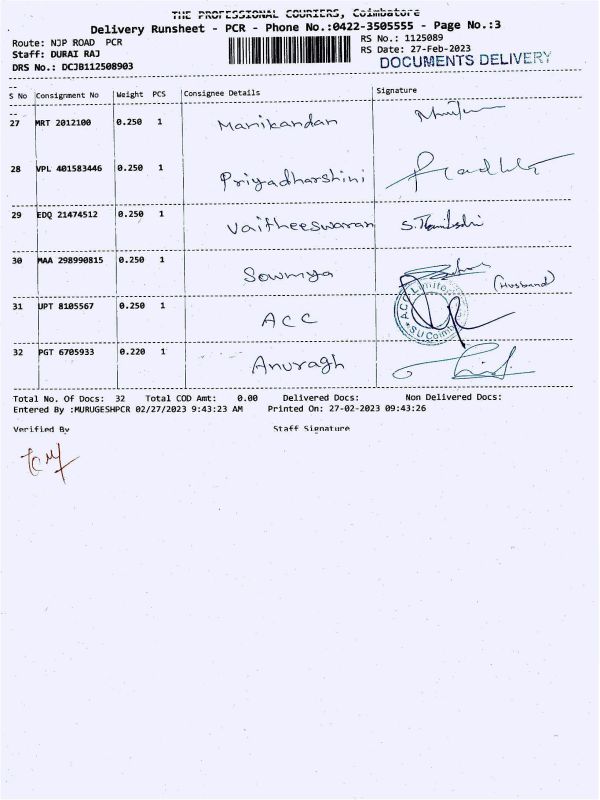 THE PROFESSIONAL COURIERS, Coimbatore
Delivery Runsheet - PCR - Phone No.:0422-3505555 - Page No.:3
Route: NJP ROAD PCR
RS No.: 1125089
Staff: DURAI RAJ
RS Date: 27-Feb-2023
DRS No.: DCJB112508903
DOCUMENTS DELIVERY
S No Consignment No Weight PCS Consignee Details Signature
27 MRT 2012100 0.250 1 Manikandan
28 VPL 401583446 0.250 1 Priyadharshini
29 EDQ 21474512 0.250 1 Vaitheeswaran
30 MAA 298990815 0.250 1 Sowmya (Husband)
31 UPT 8105567 0.250 1 ACC ACC Limited
32 PGT 6705933 0.220 1 Anuragh
Total No. Of Docs: 32 Total COD Amt: 0.00 Delivered Docs: Non Delivered Docs:
Entered By :MURUGESHPCR 02/27/2023 9:43:23 AM Printed On: 27-02-2023 09:43:26
Verified By Staff Signature